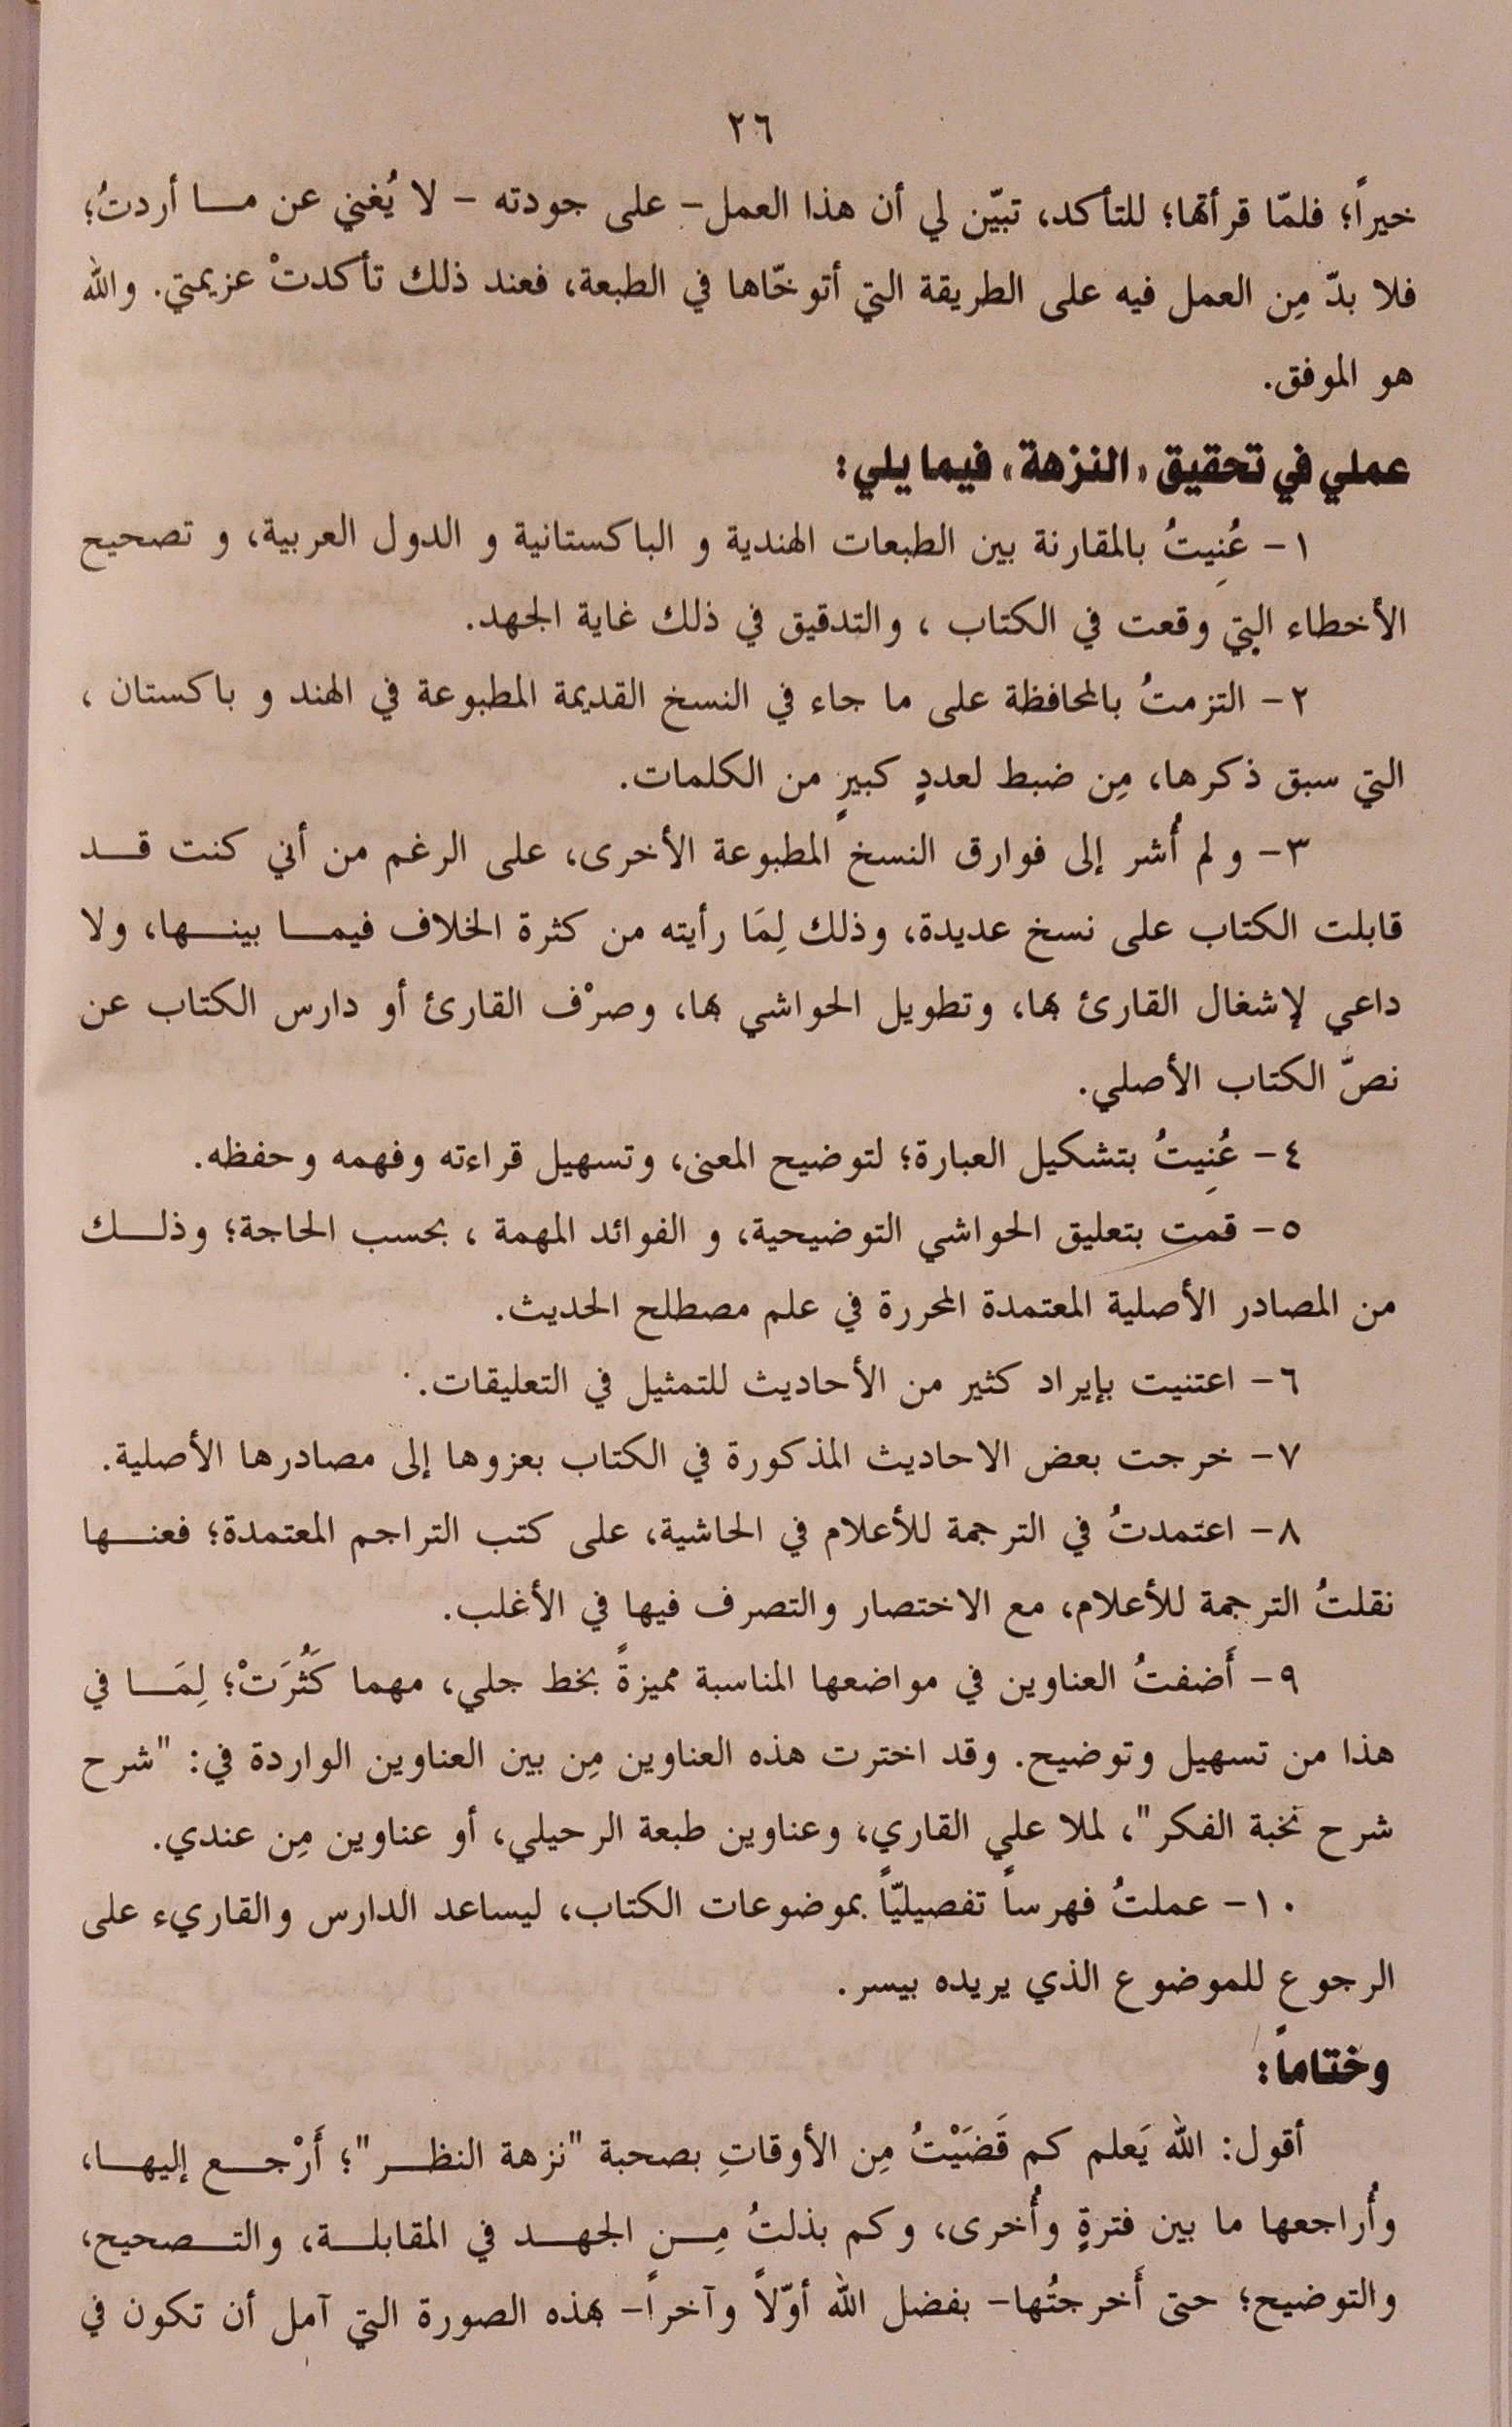 ٢٦
خيراً؛ فلمّا قرأتها؛ للتأكد، تبيّن لي أن هذا العمل- على جودته - لا يُغني عن مـــا أردتُ؛
فلا بدّ مِن العمل فيه على الطريقة التي أتوخّاها في الطبعة، فعند ذلك تأكدتْ عزيمتي. والله
هو الموفق.
عملي في تحقيق «النزهة» فيما يلي:
١- عُنِيتُ بالمقارنة بين الطبعات الهندية و الباكستانية و الدول العربية، و تصحيح
الأخطاء التي وقعت في الكتاب ، والتدقيق في ذلك غاية الجهد.
٢- التزمتُ بالمحافظة على ما جاء في النسخ القديمة المطبوعة في الهند و باكستان ،
التي سبق ذكرها، مِن ضبط لعددٍ كبيرٍ من الكلمات.
٣- و لم أُشر إلى فوارق النسخ المطبوعة الأخرى، على الرغم من أني كنت قـــد
قابلت الكتاب على نسخ عديدة، وذلك لِمَا رأيته من كثرة الخلاف فيمـــا بينـــها، ولا
داعي لإشغال القارئ بها، وتطويل الحواشي بها، وصرْف القارئ أو دارس الكتاب عن
نصّ الكتاب الأصلي.
٤- عُنِيتُ بتشكيل العبارة؛ لتوضيح المعنى، وتسهيل قراءته وفهمه وحفظه.
٥- قمت بتعليق الحواشي التوضيحية، و الفوائد المهمة ، بحسب الحاجة؛ وذلـــك
من المصادر الأصلية المعتمدة المحررة في علم مصطلح الحديث.
٦- اعتنيت بإيراد كثير من الأحاديث للتمثيل في التعليقات.
٧- خرجت بعض الاحاديث المذكورة في الكتاب بعزوها إلى مصادرها الأصلية.
٨- اعتمدتُ في الترجمة للأعلام في الحاشية، على كتب التراجم المعتمدة؛ فعنـــها
نقلتُ الترجمة للأعلام، مع الاختصار والتصرف فيها في الأغلب.
٩- أَضفتُ العناوين في مواضعها المناسبة مميزةً بخط جلي، مهما كَثُرَتْ؛ لِمَـــا في
هذا من تسهيل وتوضيح. وقد اخترت هذه العناوين مِن بين العناوين الواردة في: "شرح
شرح نخبة الفكر"، لملا علي القاري، وعناوين طبعة الرحيلي، أو عناوين مِن عندي.
١٠- عملتُ فهرساً تفصيليّاً بموضوعات الكتاب، ليساعد الدارس والقاريء على
الرجوع للموضوع الذي يريده بيسر.
وختاماً:
أقول: الله يَعلم كم قَضَيْتُ مِن الأوقاتِ بصحبة "نزهة النظـــر"؛ أَرْجـــع إليهـــا،
وأُراجعها ما بين فترةٍ وأُخرى، وكم بذلتُ مِـــن الجهـــد في المقابلـــة، والتـــصحيح،
والتوضيح؛ حتى أَخرجتُها- بفضل الله أوّلاً وآخراً- بهذه الصورة التي آمل أن تكون في